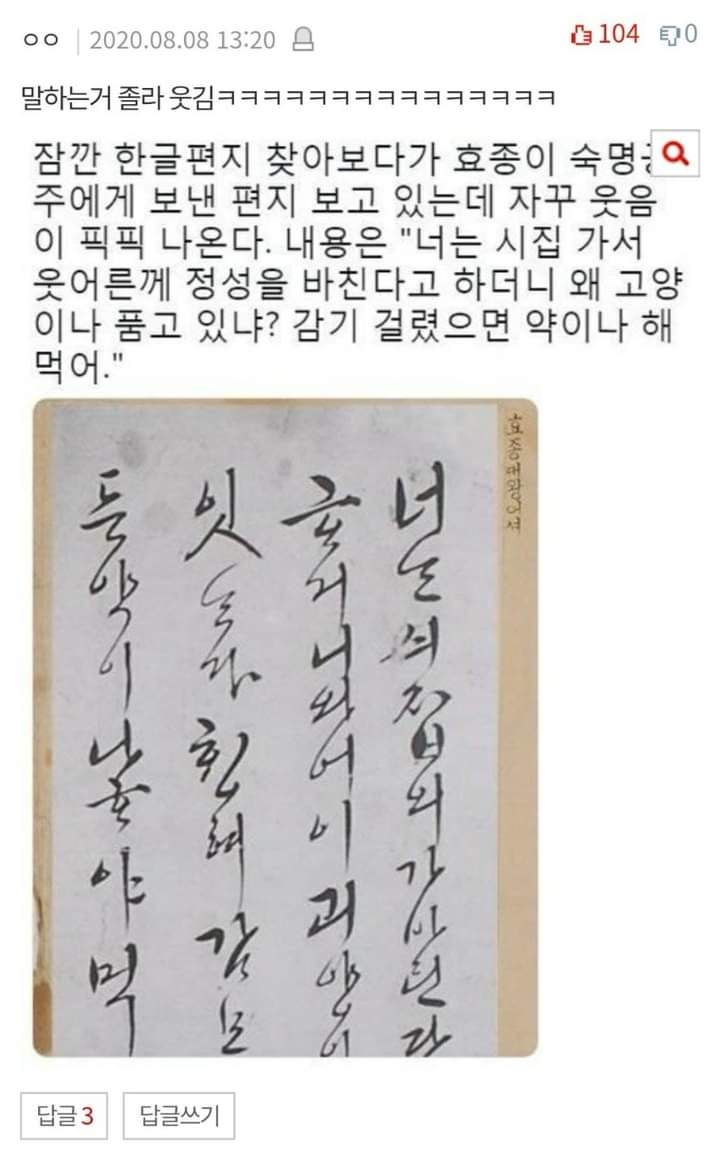 ㅇㅇ 2020.08.08 13:20 104 0
말하는거 졸라 웃김ㅋㅋㅋㅋㅋㅋㅋㅋㅋㅋㅋㅋㅋㅋㅋ
잠깐 한글편지 찾아보다가 효종이 숙명공
주에게 보낸 편지 보고 있는데 자꾸 웃음
이 픽픽 나온다. 내용은 "너는 시집 가서
웃어른께 정성을 바친다고 하더니 왜 고양
이나 품고 있냐? 감기 걸렸으면 약이나 해
먹어."
효종대왕어셔
너는 싀집의 가 바틴다
거니와 어이 괴양이
잇는다 감모
든 약이나 ᄒᆞ야 먹
답글 3 답글쓰기